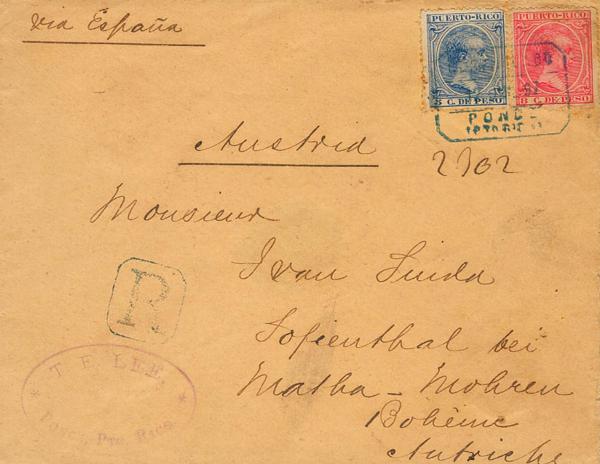 via España
PUERTO-RICO
5 C. DE PESO
PUERTO-RICO
8 C. DE PESO
PONCE
Austria
2702
Monsieur
Ivan Suida
Sofienthal bei
Matha - Mohren
Bohème
Autriche
R
* T. E. LEE. *
PONCE, Pto. RICO